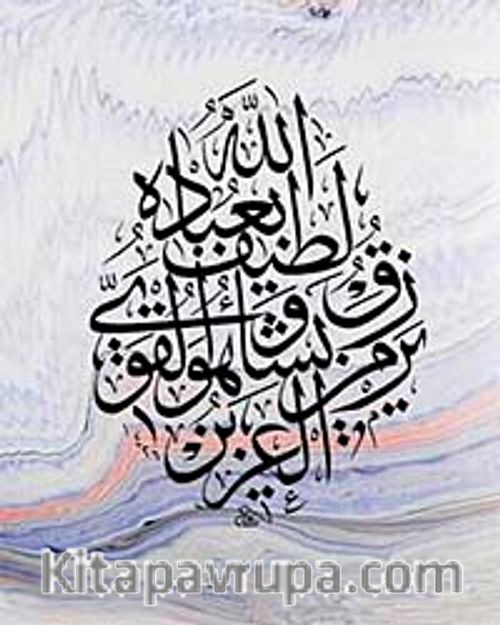 الله
لطيف بعباده
يرزق من يشاء وهو القوي
العزيز
Kitapavrupa.com